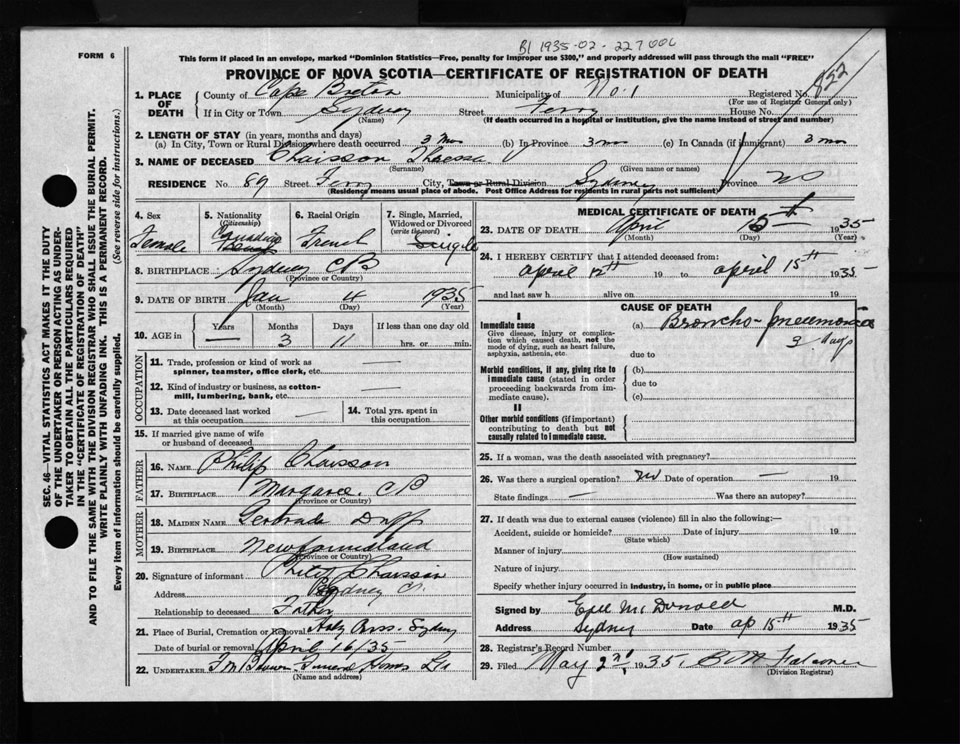 FORM 6
B1 1935-02-227006
This form if placed in an envelope, marked "Dominion Statistics—Free, penalty for improper use $300," and properly addressed will pass through the mail "FREE"
PROVINCE OF NOVA SCOTIA—CERTIFICATE OF REGISTRATION OF DEATH
852
1. PLACE OF DEATH County of Cape Breton Municipality of No. 1 Registered No.
(For use of Registrar General only)
If in City or Town Sydney Street Ferry House No.
(Name) (If death occurred in a hospital or institution, give the name instead of street and number)
2. LENGTH OF STAY (in years, months and days)
(a) In City, Town or Rural Division where death occurred 3 mos (b) In Province 3 mos (c) In Canada (if immigrant) 3 mos
3. NAME OF DECEASED Chaisson
(Surname) (Given name or names)
RESIDENCE No. 89 Street Ferry City, Town or Rural Division Sydney Province NS
(Residence means usual place of abode. Post Office Address for residents in rural parts not sufficient)
4. Sex Female
5. Nationality (Citizenship) Canadian
6. Racial Origin French
7. Single, Married, Widowed or Divorced (write the word) Single
8. BIRTHPLACE Sydney CB
(Province or Country)
9. DATE OF BIRTH Jan 4 1935
(Month) (Day) (Year)
10. AGE in Years — Months 3 Days 11 If less than one day old hrs. or min.
OCCUPATION
11. Trade, profession or kind of work as spinner, teamster, office clerk, etc. —
12. Kind of industry or business, as cotton-mill, lumbering, bank, etc. —
13. Date deceased last worked at this occupation —
14. Total yrs. spent in this occupation
15. If married give name of wife or husband of deceased
FATHER
16. NAME Philip Chaisson
17. BIRTHPLACE Margaree, CB
(Province or Country)
MOTHER
18. MAIDEN NAME Duff
19. BIRTHPLACE Newfoundland
(Province or Country)
20. Signature of informant Philip Chaisson
Address Sydney
Relationship to deceased Father
21. Place of Burial, Cremation or Removal Holy Cross. Sydney
Date of burial or removal April 16/35
22. UNDERTAKER Funeral Home
(Name and address)
MEDICAL CERTIFICATE OF DEATH
23. DATE OF DEATH April 15th 1935
(Month) (Day) (Year)
24. I HEREBY CERTIFY that I attended deceased from:
April 12th 19 to April 15th 1935
and last saw h alive on 19
CAUSE OF DEATH
I
Immediate cause
Give disease, injury or complication which caused death, not the mode of dying, such as heart failure, asphyxia, asthenia, etc.
(a) Broncho-pneumonia
3 days
due to
Morbid conditions, if any, giving rise to immediate cause (stated in order proceeding backwards from immediate cause).
(b)
due to
(c)
II
Other morbid conditions (if important) contributing to death but not causally related to immediate cause.
25. If a woman, was the death associated with pregnancy?
26. Was there a surgical operation? no Date of operation 19
State findings — Was there an autopsy?
27. If death was due to external causes (violence) fill in also the following:—
Accident, suicide or homicide? Date of injury 19
(State which)
Manner of injury
(How sustained)
Nature of injury
Specify whether injury occurred in industry, in home, or in public place
Signed by McDonald M.D.
Address Sydney Date ap 15th 1935
28. Registrar's Record Number
29. Filed May 2nd 1935
(Division Registrar)
SEC. 46—VITAL STATISTICS ACT MAKES IT THE DUTY
OF THE UNDERTAKER OR PERSON ACTING AS UNDERTAKER
TO OBTAIN ALL THE PARTICULARS REQUIRED
IN THE "CERTIFICATE OF REGISTRATION OF DEATH"
AND TO FILE THE SAME WITH THE DIVISION REGISTRAR WHO SHALL ISSUE THE BURIAL PERMIT.
WRITE PLAINLY WITH UNFADING INK. THIS IS A PERMANENT RECORD.
Every item of information should be carefully supplied. (See reverse side for instructions.)